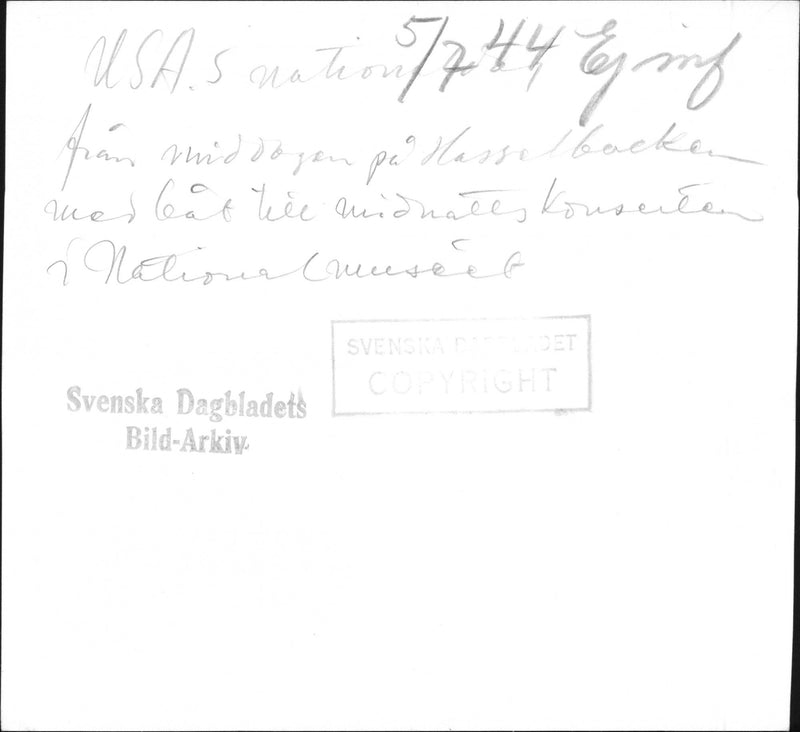 USA.s nationaldag 5/7 44 Ej inf
från middagen på Hasselbacken
med båt till midnattskonserten
i Nationalmuséet
SVENSKA DAGBLADET
COPYRIGHT
Svenska Dagbladets
Bild-Arkiv